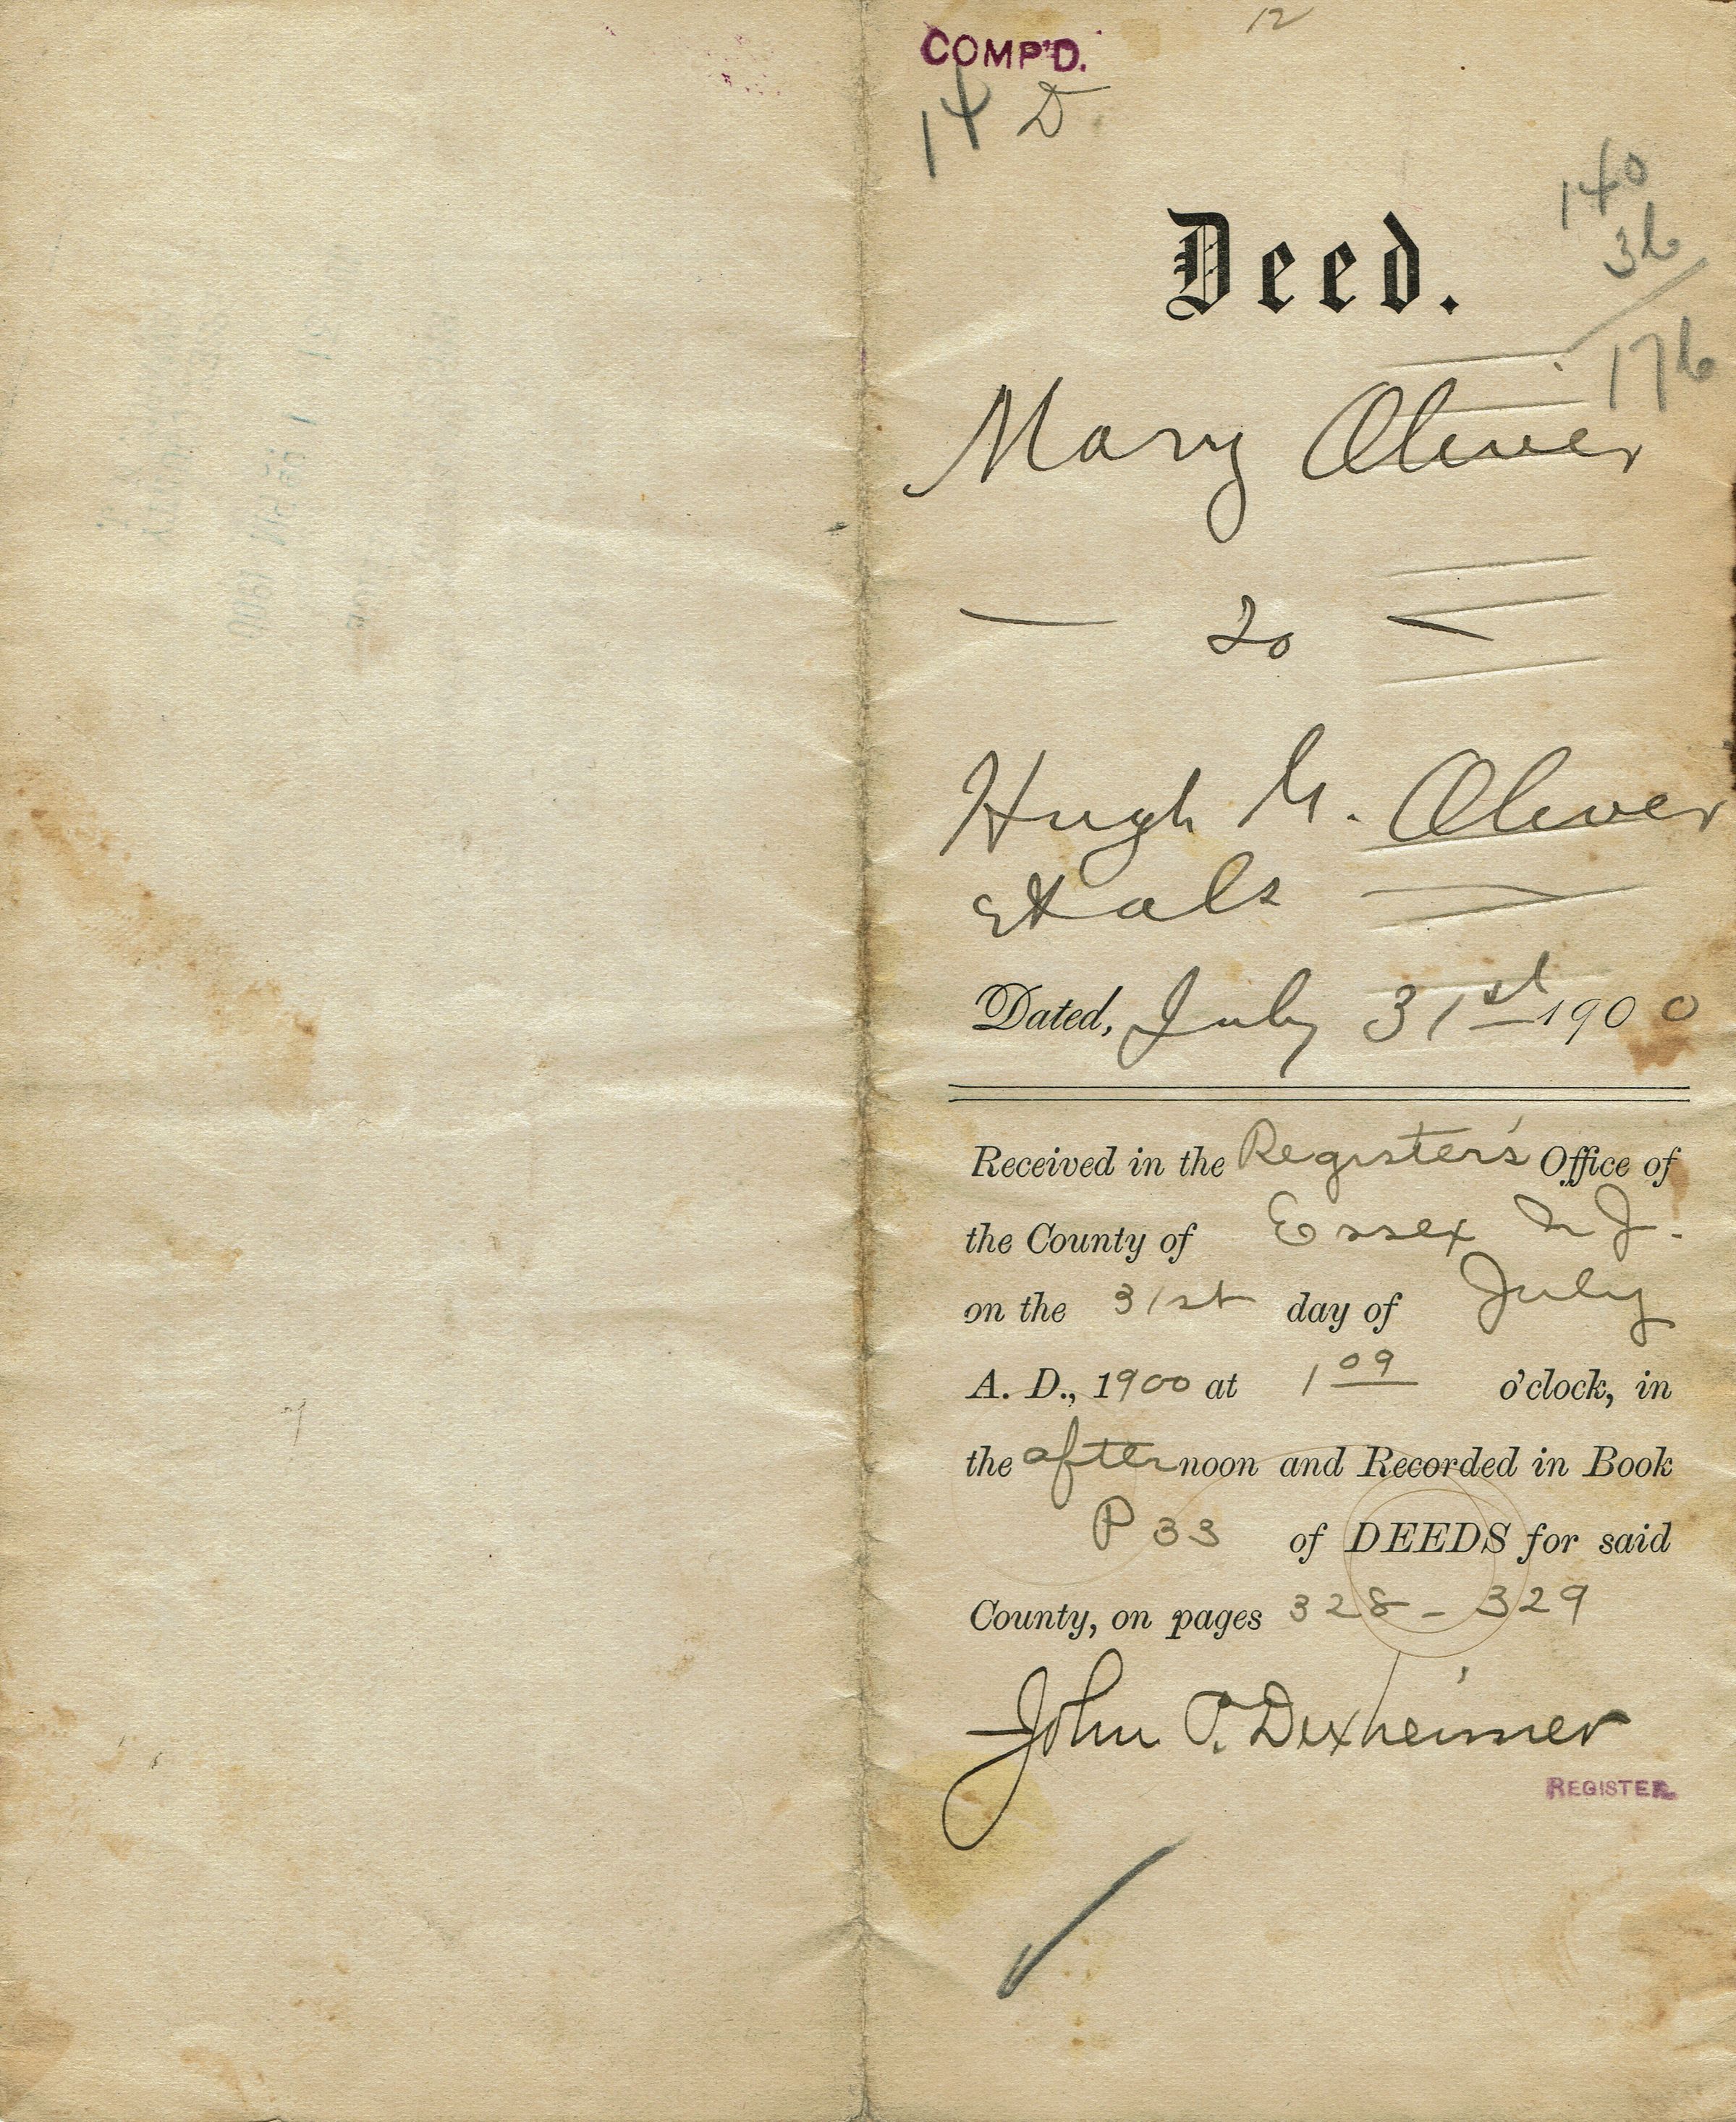 12
COMP'D.
14 D
140
36
176
Deed.
Mary Oliver
— To —
Hugh G. Oliver
et als
Dated, July 31st 1900
Received in the Register's Office of
the County of Essex N J.
on the 31st day of July
A. D., 1900 at 1 09 o'clock, in
the afternoon and Recorded in Book
P 33 of DEEDS for said
County, on pages 328 - 329
John P. Dexheimer
REGISTER.